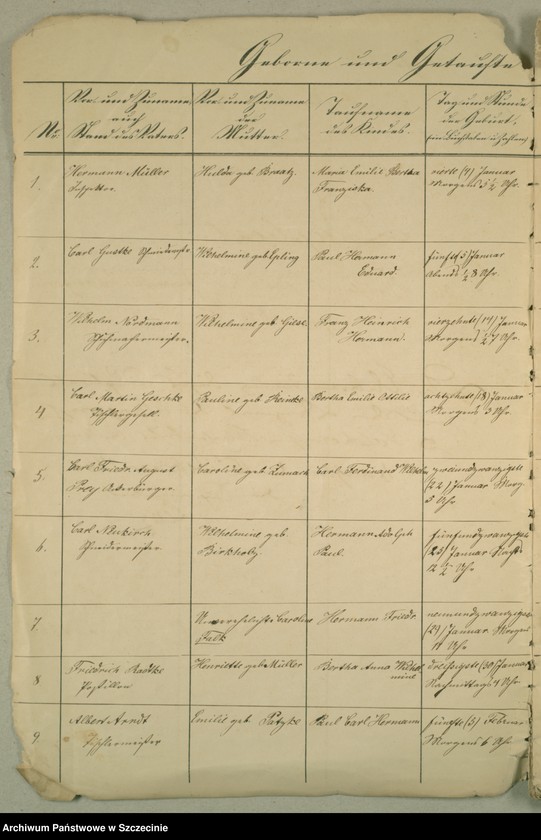 Geborne und Getaufte
No.
Vor und Zuname
auch
Stand des Vaters.
Vor und Zuname
der
Mutter.
Taufname
des Kindes.
Tag und Stunde
der Geburt.
1.
Hermann Müller
Hulda geb. Braatz.
Maria Emilie Bertha
Franziska.
vierte (4) Januar
Morgens 5 1/2 Uhr.
2.
Carl Gustke
Wilhelmine geb.
Paul Hermann
Eduard.
fünfte (5) Januar
Abends 1/2 8 Uhr.
3.
Wilhelm Nordmann
Schuhmachermeister.
Wilhelmine geb. Giese.
Franz Heinrich
Hermann.
vierzehnte (14) Januar
Morgens 1/2 7 Uhr.
4
Carl Martin Geschke
Tischlergesell.
Pauline geb. Reinke
Bertha Emilie Ottilie
achtzehnte (18) Januar
Morgens 3 Uhr.
5.
Carl Friedr. August
Ackerbürger.
Caroline geb.
Carl Ferdinand Wilhelm
zweiundzwanzigste
(22) Januar Morg.
3 Uhr
6.
Carl Neukirch
Schneidermeister.
Wilhelmine geb.
Birkholz.
Hermann Adolph
Paul.
fünfundzwanzigste
(25) Januar
12 1/2 Uhr
7.
Unverehelichte Caroline
Falk
Hermann Friedr.
neunundzwanzigste
(29) Januar Morgens
11 Uhr
8
Friedrich Radtke
Postillon
Henriette geb. Müller
Bertha Anna Wilhel
mine
dreißigste (30) Januar
Nachmittags 4 Uhr.
9
Albert Arndt
Tischlermeister
Emilie geb. Patzke
Paul Carl Hermann
fünfte (5) Februar
Morgens 6 Uhr
Archiwum Państwowe w Szczecinie